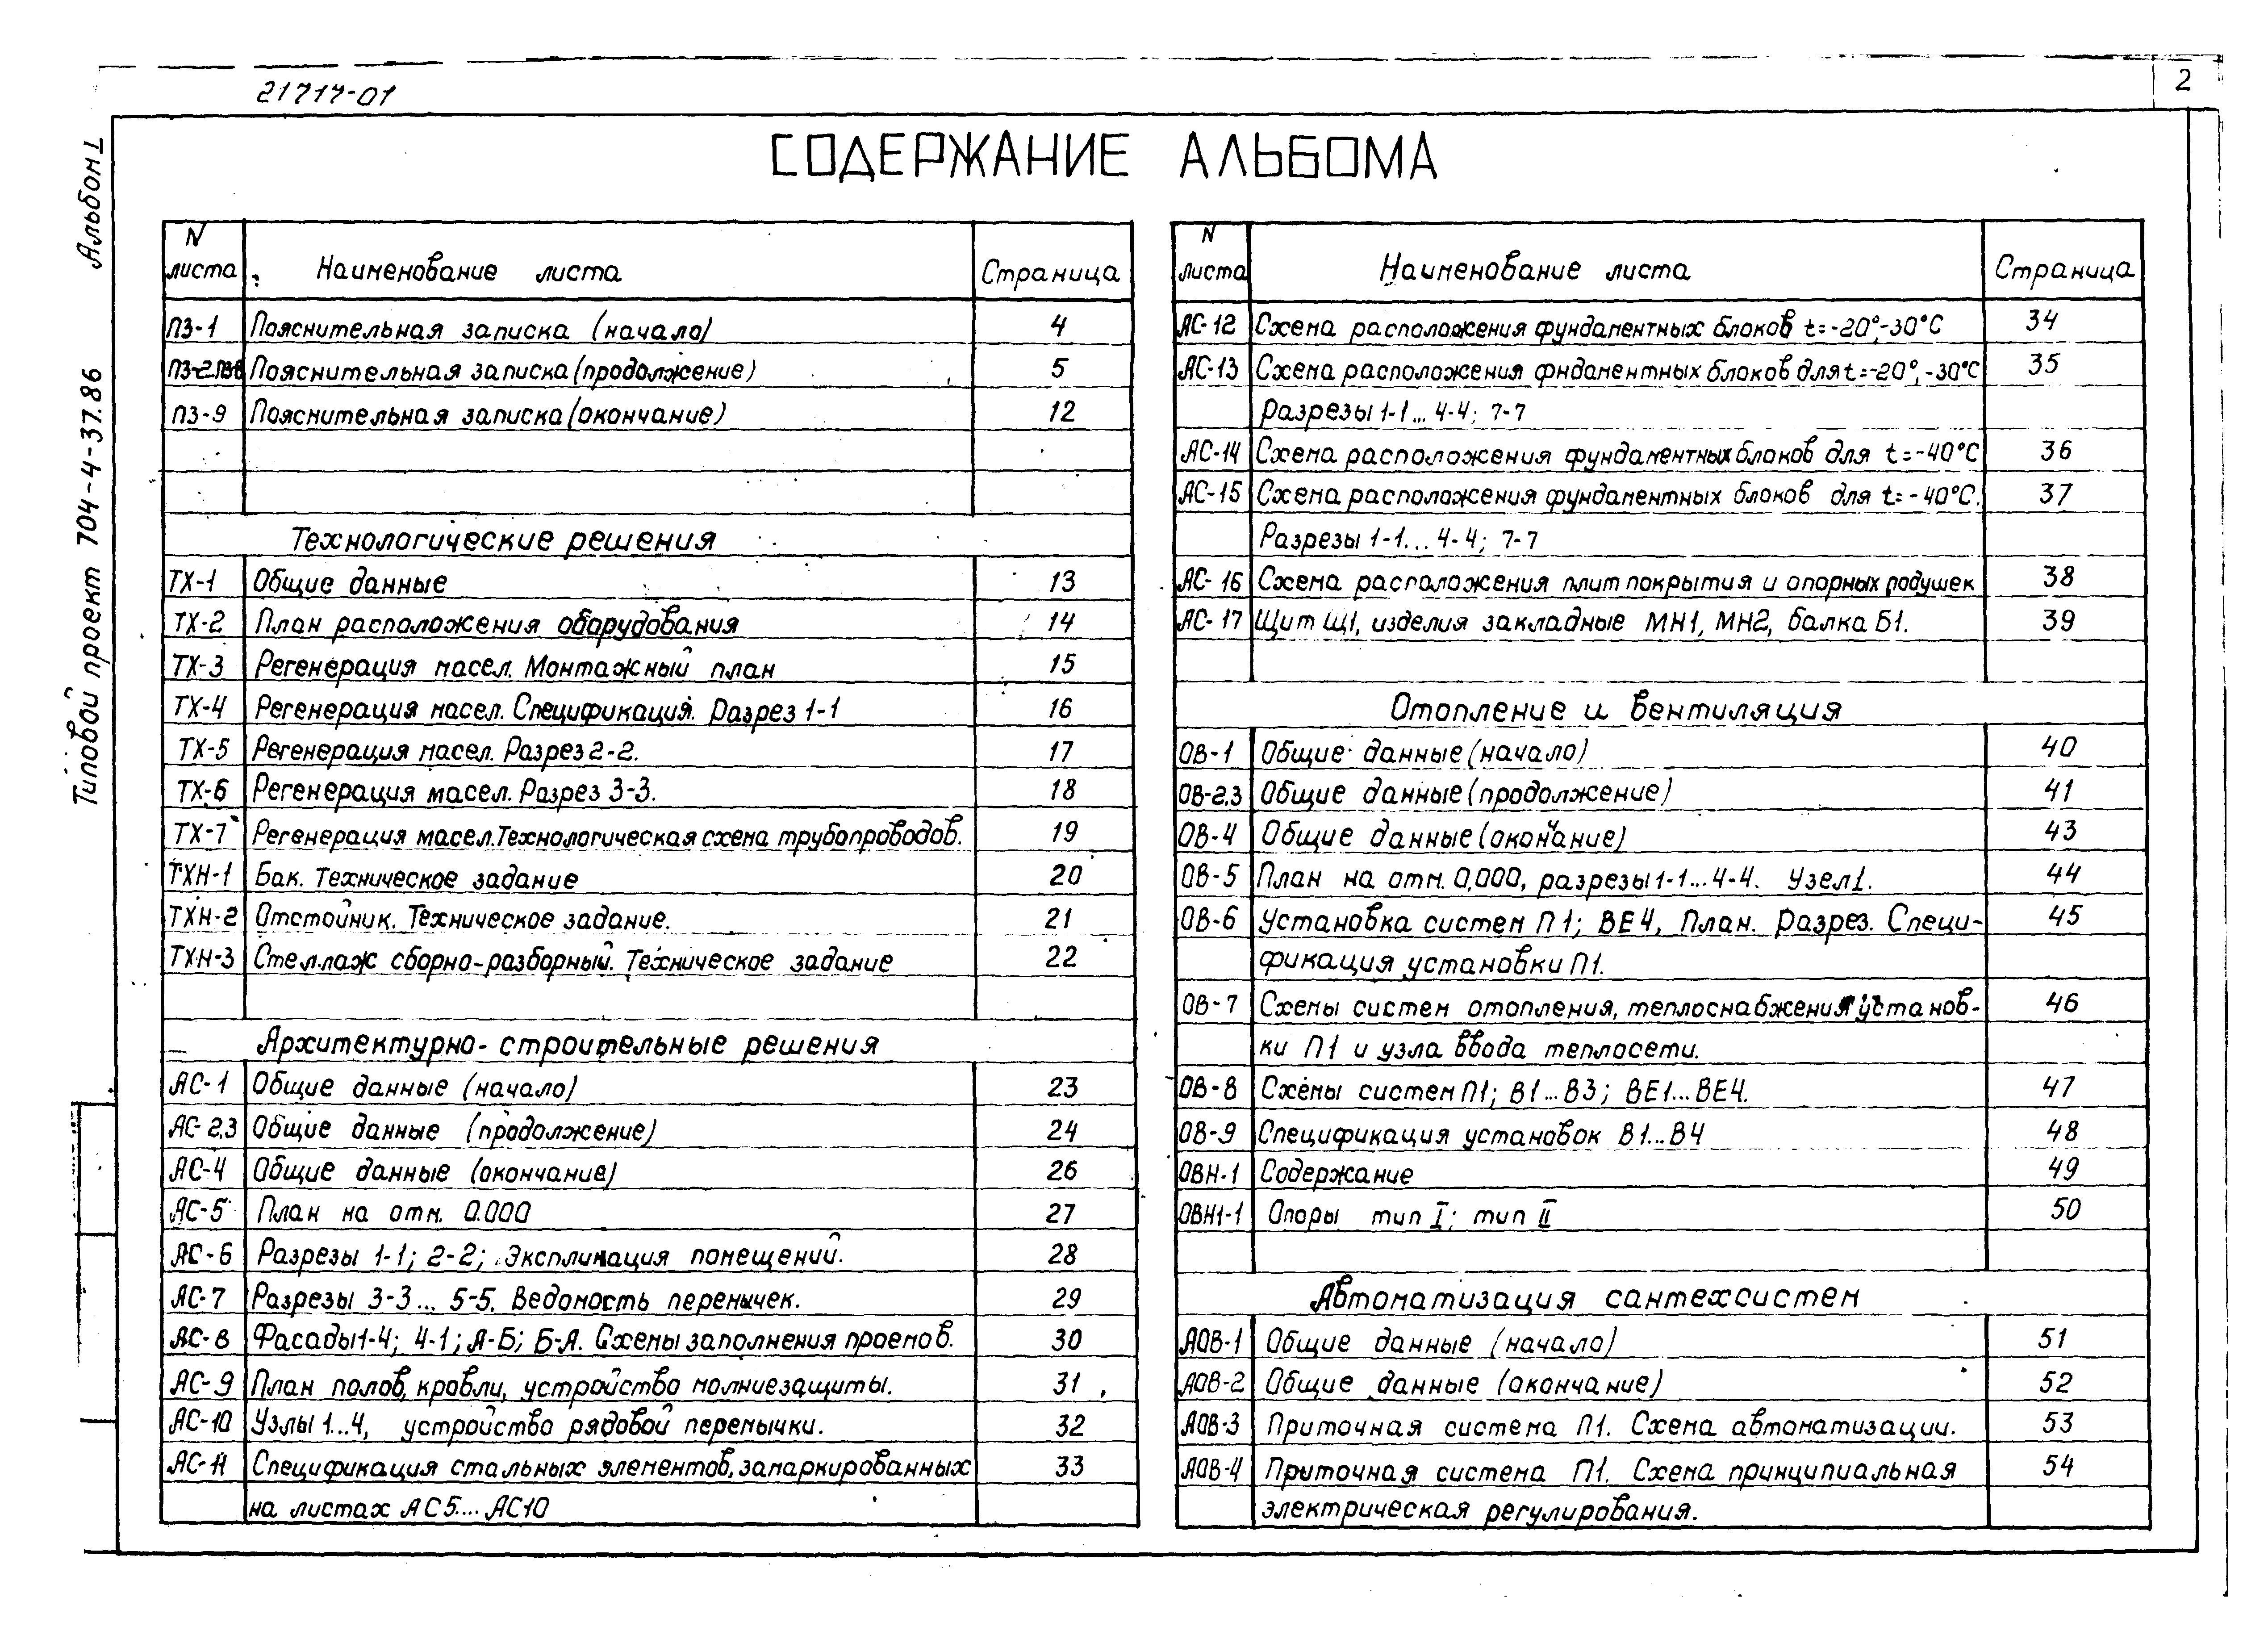 21717-01
2
Альбом I
Типовой проект 704-4-37.86
СОДЕРЖАНИЕ АЛЬБОМА
N листа Наименование листа Страница
ПЗ-1 Пояснительная записка (начало) 4
Пояснительная записка (продолжение) 5
ПЗ-9 Пояснительная записка (окончание) 12
Технологические решения
ТХ-1 Общие данные 13
ТХ-2 План расположения оборудования 14
ТХ-3 Регенерация масел. Монтажный план 15
ТХ-4 Регенерация масел. Спецификация. Разрез 1-1 16
ТХ-5 Регенерация масел. Разрез 2-2. 17
ТХ-6 Регенерация масел. Разрез 3-3. 18
ТХ-7 Регенерация масел. Технологическая схема трубопроводов. 19
ТХН-1 Бак. Техническое задание 20
ТХН-2 Отстойник. Техническое задание. 21
ТХН-3 Стеллаж сборно-разборный. Техническое задание 22
Архитектурно-строительные решения
АС-1 Общие данные (начало) 23
АС-2,3 Общие данные (продолжение) 24
АС-4 Общие данные (окончание) 26
АС-5 План на отм. 0.000 27
АС-6 Разрезы 1-1; 2-2; Экспликация помещений. 28
АС-7 Разрезы 3-3... 5-5. Ведомость перемычек. 29
АС-8 Фасады 1-4; 4-1; А-Б; Б-А. Схемы заполнения проемов. 30
АС-9 План полов, кровли, устройство молниезащиты. 31
АС-10 Узлы 1...4, устройство рядовой перемычки. 32
АС-11 Спецификация стальных элементов, замаркированных 33
на листах АС5.... АС10
N листа Наименование листа Страница
АС-12 Схема расположения фундаментных блоков t=-20°,-30°С 34
АС-13 Схема расположения фндаментных блоков для t=-20°,-30°С 35
Разрезы 1-1... 4-4; 7-7
АС-14 Схема расположения фундаментных блоков для t=-40°С 36
АС-15 Схема расположения фундаментных блоков для t=-40°С. 37
Разрезы 1-1... 4-4; 7-7
АС-16 Схема расположения плит покрытия и опорных подушек 38
АС-17 Щит Щ1, изделия закладные МН1, МН2, балка Б1. 39
Отопление и вентиляция
ОВ-1 Общие данные (начало) 40
ОВ-2,3 Общие данные (продолжение) 41
ОВ-4 Общие данные (окончание) 43
ОВ-5 План на отм. 0,000, разрезы 1-1...4-4. Узел I. 44
ОВ-6 Установка систем П1; ВЕ4, План. Разрез. Специ- 45
фикация установки П1.
ОВ-7 Схемы систем отопления, теплоснабжения установ- 46
ки П1 и узла ввода теплосети.
ОВ-8 Схемы систем П1; В1...В3; ВЕ1...ВЕ4. 47
ОВ-9 Спецификация установок В1...В4 48
ОВН-1 Содержание 49
ОВН1-1 Опоры тип I; тип II 50
Автоматизация сантехсистем
АОВ-1 Общие данные (начало) 51
АОВ-2 Общие данные (окончание) 52
АОВ-3 Приточная система П1. Схема автоматизации. 53
АОВ-4 Приточная система П1. Схема принципиальная 54
электрическая регулирования.